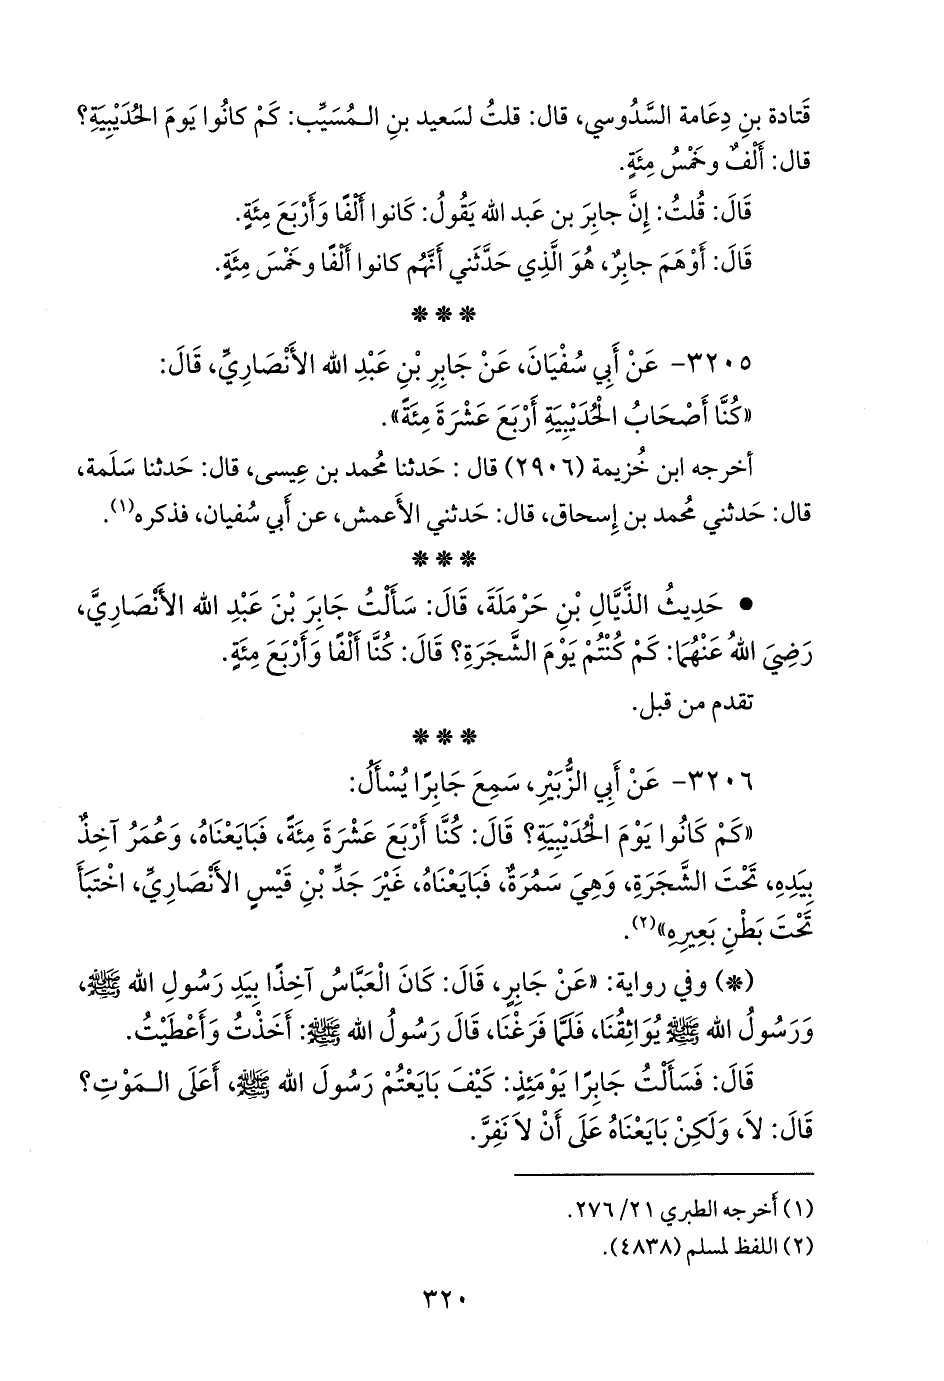 قَتادة بنِ دِعَامة السَّدُوسي، قال: قلتُ لسَعيد بنِ المُسَيِّب: كَمْ كانُوا يَومَ الحُدَيْبِيَةِ؟
قال: أَلْفٌ وخَمْسُ مِئَةٍ.
قَالَ: قُلتُ: إِنَّ جابِرَ بن عَبد الله يَقُولُ: كَانوا أَلْفًا وَأَرْبَعَ مِئَةٍ.
قَالَ: أَوْهَمَ جابِرٌ، هُوَ الَّذِي حَدَّثَني أَنَّهُم كانوا أَلْفًا وخَمْسَ مِئَةٍ.
* * *
٣٢٠٥- عَنْ أَبِي سُفْيَانَ، عَنْ جَابِرِ بْنِ عَبْدِ الله الأَنْصَارِيِّ، قَالَ:
«كُنَّا أَصْحَابُ الْحُدَيْبِيَةِ أَرْبَعَ عَشْرَةَ مِئَةً».
أخرجه ابن خُزيمة (٢٩٠٦) قال : حَدثنا مُحمد بن عِيسى، قال: حَدثنا سَلَمة،
قال: حَدثني مُحمد بن إِسحاق، قال: حَدثني الأَعمش، عن أَبي سُفيان، فذكره(١).
* * *
• حَدِيثُ الذَّيَّالِ بْنِ حَرْمَلَةَ، قَالَ: سَأَلْتُ جَابِرَ بْنَ عَبْدِ الله الأَنْصَارِيَّ،
رَضِيَ اللهُ عَنْهُمَا: كَمْ كُنْتُمْ يَوْمَ الشَّجَرَةِ؟ قَالَ: كُنَّا أَلْفًا وَأَرْبَعَ مِئَةٍ.
تقدم من قبل.
* * *
٣٢٠٦- عَنْ أَبِي الزُّبَيْرِ، سَمِعَ جَابِرًا يُسْأَلُ:
«كَمْ كَانُوا يَوْمَ الْحُدَيْبِيَةِ؟ قَالَ: كُنَّا أَرْبَعَ عَشْرَةَ مِئَةً، فَبَايَعْنَاهُ، وَعُمَرُ آخِذٌ
بِيَدِهِ، تَحْتَ الشَّجَرَةِ، وَهِيَ سَمُرَةٌ، فَبَايَعْنَاهُ، غَيْرَ جَدِّ بْنِ قَيْسٍ الأَنْصَارِيِّ، اخْتَبَأَ
تَحْتَ بَطْنِ بَعِيرِهِ»(٢).
(*) وفي رواية: «عَنْ جَابِرٍ، قَالَ: كَانَ الْعَبَّاسُ آخِذًا بِيَدِ رَسُولِ الله ﷺ،
وَرَسُولُ الله ﷺ يُوَاثِقُنَا، فَلَمَّا فَرَغْنَا، قَالَ رَسُولُ الله ﷺ: أَخَذْتُ وَأَعْطَيْتُ.
قَالَ: فَسَأَلْتُ جَابِرًا يَوْمَئِذٍ: كَيْفَ بَايَعْتُمْ رَسُولَ الله ﷺ، أَعَلَى المَوْتِ؟
قَالَ: لاَ، وَلَكِنْ بَايَعْنَاهُ عَلَى أَنْ لاَ نَفِرَّ.
(١) أخرجه الطبري ٢١/ ٢٧٦.
(٢) اللفظ لمسلم (٤٨٣٨).
٣٢٠